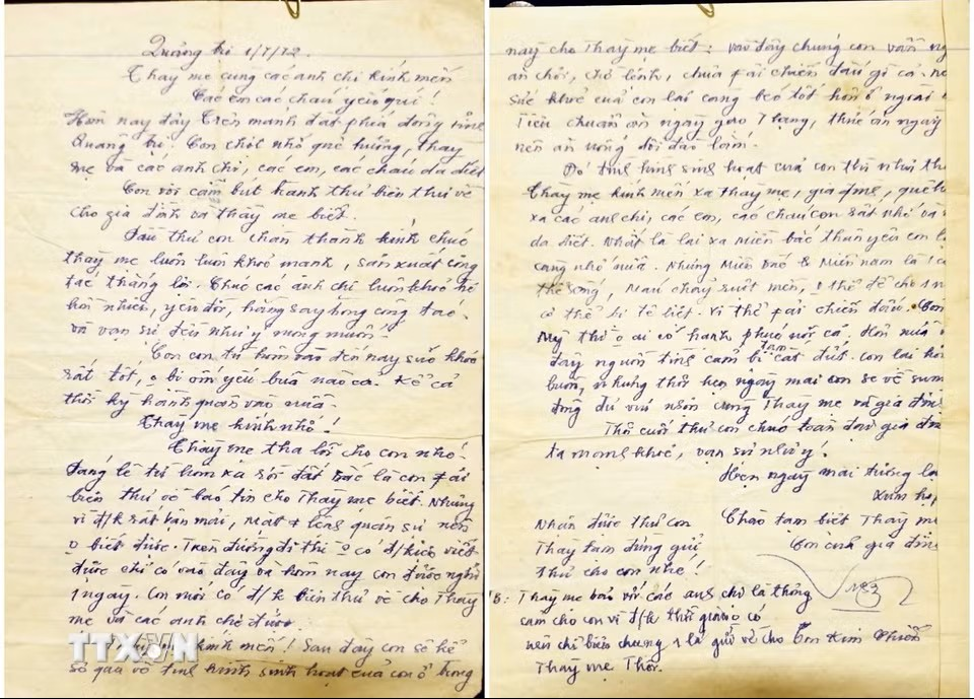 Quảng trị 1/7/72.
Thày mẹ cùng các anh chị kính mến
Các em các cháu yêu quí!
Hôm nay đây trên mảnh đất phía đông tỉnh
Quảng trị. Con chợt nhớ quê hương, thày
mẹ và các anh chị, các em, các cháu da diết
Con vội cầm bút hành thư biên thư về
cho gia đình và thày mẹ biết.
Đầu thư con chân thành kính chúc
thày mẹ luôn luôn khoẻ mạnh, sản xuất công
tác thắng lợi. Chúc các anh chị luôn khoẻ
hồn nhiên, yêu đời, hăng say trong công tác
và vạn sự đều như ý mong muốn.
Còn con từ hôm vào đến nay sức khoẻ
rất tốt, o bị ốm yếu bữa nào cả. Kể cả
thời kỳ hành quân vào nữa.
Thày mẹ kính nhớ!
Thày mẹ tha lỗi cho con nhé.
Đáng lẽ từ hôm xa rời đất bắc là con fải
biên thư về báo tin cho Thày mẹ biết. Nhưng
vì đ/k rất bận mải, mặt # là lính quân sự nên
o biết được. Trên đường đi thì o có đ/kiện viết
được chỉ có vào đây và hôm nay con được nghỉ
1 ngày. Con mới có đ/k biên thư về cho Thày
mẹ và các anh chị được.
kính mến! Sau đây con sẽ kể
sơ qua về tình hình sinh hoạt của con ở trong
TTXVN
này cho Thày mẹ biết: vào đây chúng con vẫn
ăn chơi, chờ lệnh, chưa fải chiến đấu gì cả.
Sức khoẻ của con lại càng béo tốt hơn ở ngoài
Tiêu chuẩn ăn ngày 7 lạng, thức ăn ngày
nên ăn uống dồi dào lắm.
Đó tình hình sinh hoạt của con thì như
Thày mẹ kính mến xa thày mẹ, gia đình, quê
xa các anh chị, các em, các cháu con rất nhớ và
da diết. Nhất là lại xa miền bắc thân yêu con
càng nhớ nữa. Nhưng Miền Bắc & Miền nam là 1
thể sống, máu chảy ruột mềm, o thể để cho
cơ thể bị tê liệt. Vì thế fải chiến đấu. Còn
Mỹ thì o ai có hạnh phúc nổi cả. Hơn nữa
đây người tình cảm bị tạm cắt đứt. con lại
buồn, nhưng thôi hẹn ngày mai con sẽ về sum
đông đủ vui nhộn cùng Thày mẹ và gia đình
Thôi cuối thư con chúc toàn thể gia đình
ta mạnh khoẻ, vạn sự như ý!
Hẹn ngày mai tương lai
xum họp
Nhận được thư con
Thày tạm đừng gửi
thư cho con nhé!
Chào tạm biệt Thày mẹ
Con của gia đình
B: Thày mẹ bảo với các anh chị là thông
cảm cho con vì đ/k thời gian o có
nên chỉ biên chung 1 lá gửi về cho
Thày mẹ Thôi.